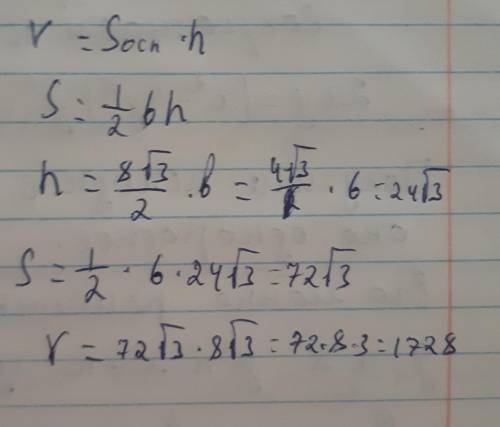 V = Sосн · h
S = 1/2 bh
h = 8√3/2 · b = 4√3/1 · 6 = 24√3
S = 1/2 · 6 · 24√3 = 72√3
V = 72√3 · 8√3 = 72·8·3 = 1728